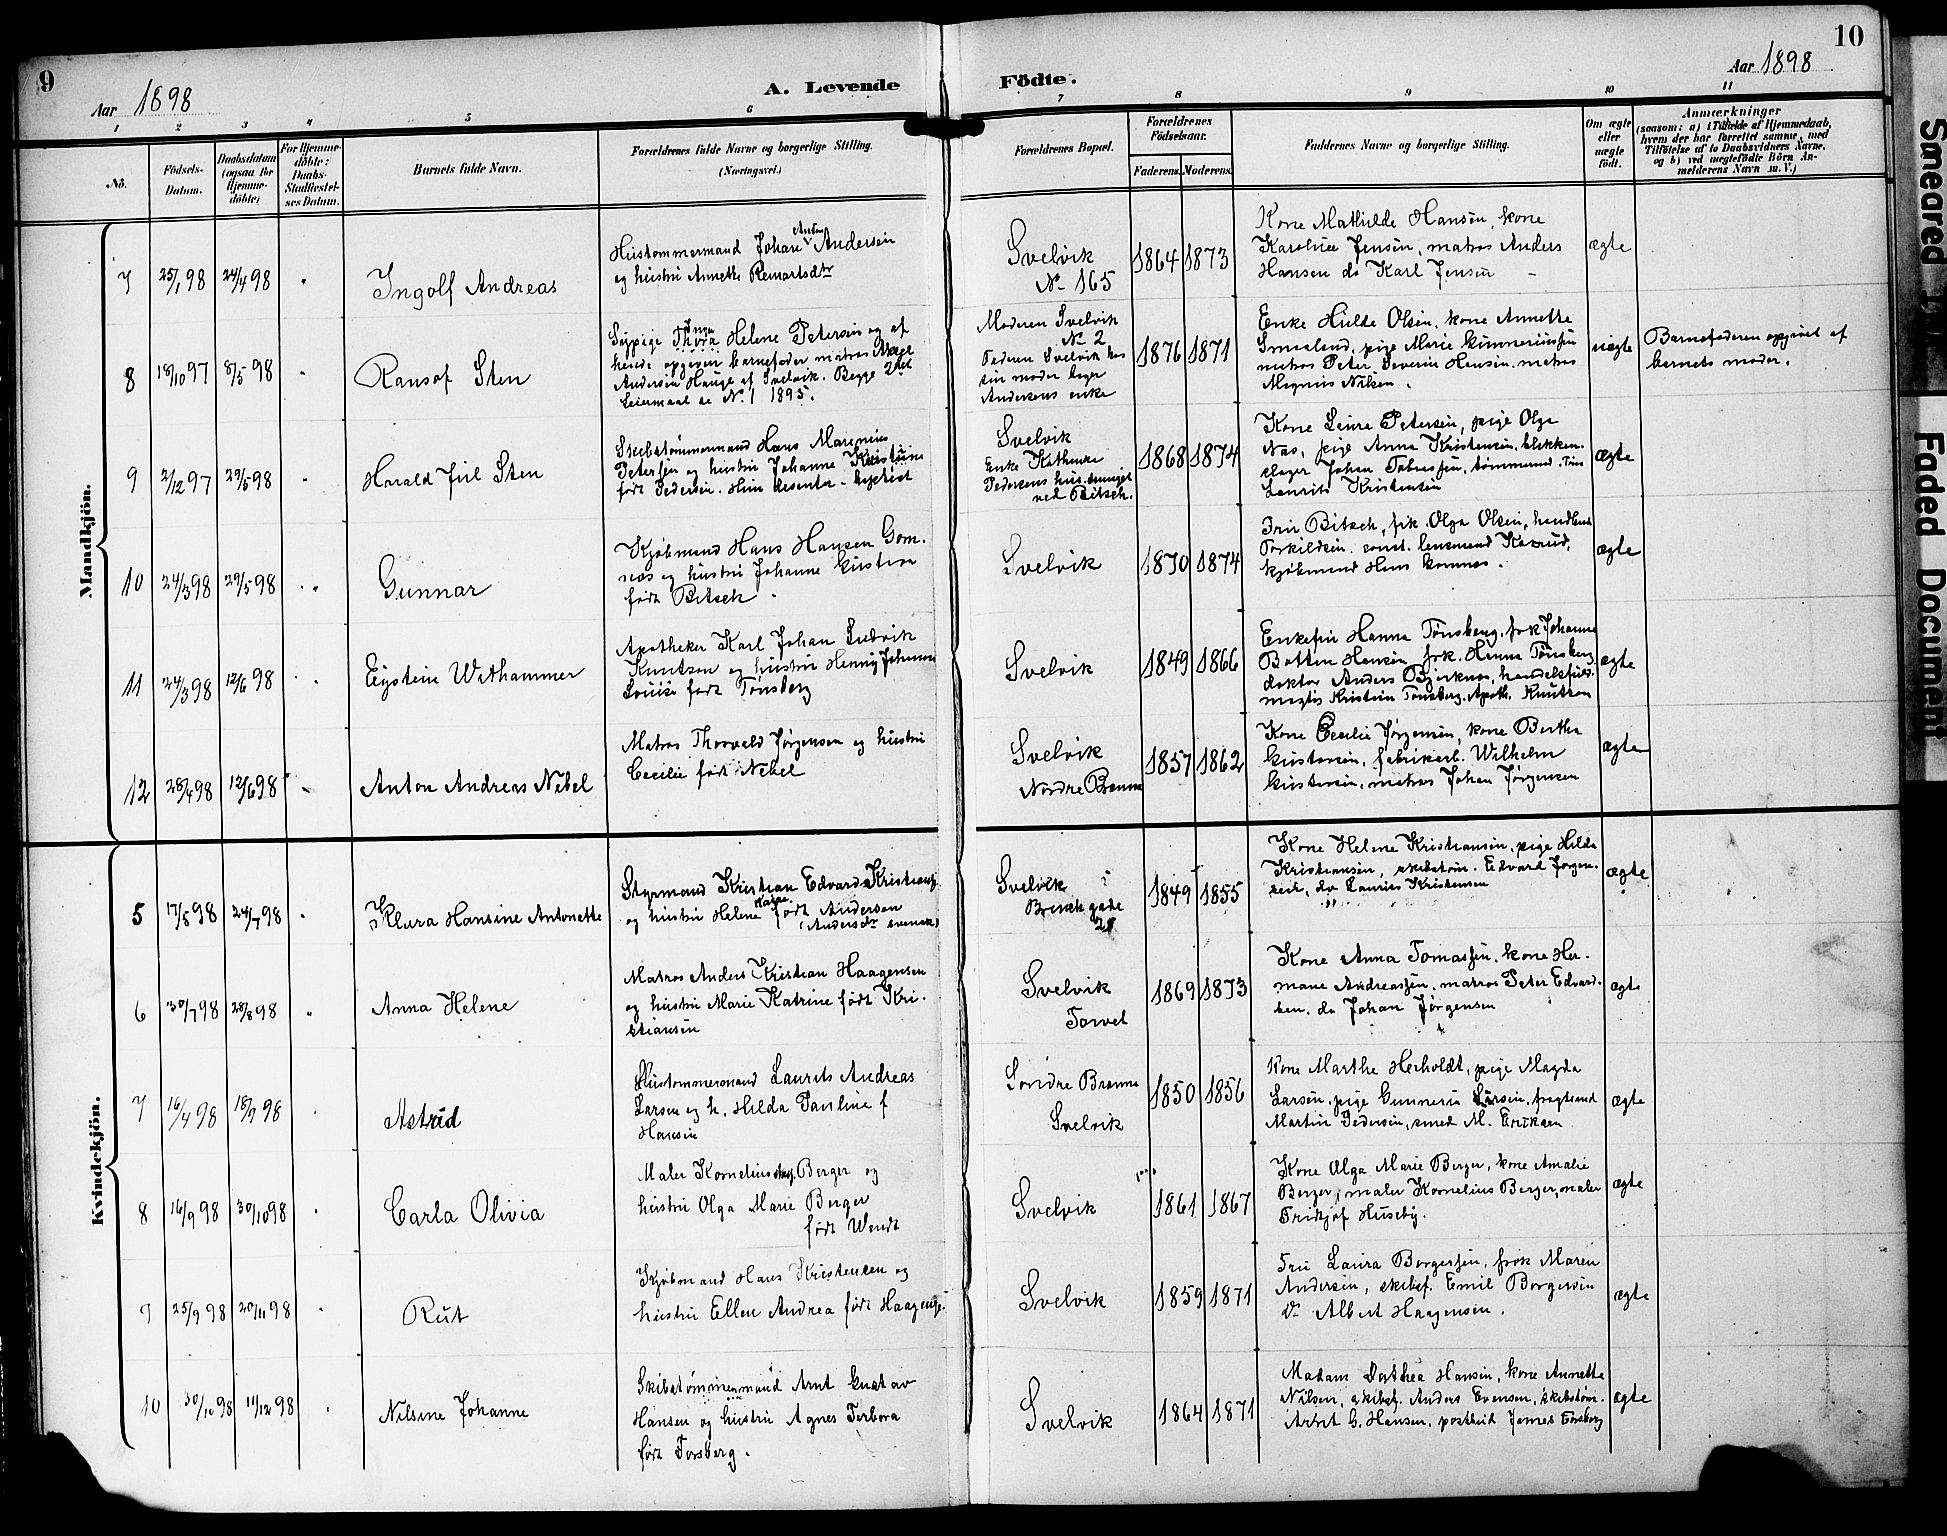 9
Aar 1898
A. Levende
Födte.
Aar 1898
10
1 2 3 4 5 6 7 8 9 10 11
No.
Födsels-
Datum.
Daabsdatum
(ogsaa for
Hjemme-
döbte)
For Hjemme-
döbte:
Daabs-
Stadfæstel-
ses Datum.
Barnets fulde Navn.
Forældrenes fulde Navne og borgerlige Stilling.
(Næringsvei.)
Forældrenes Bopæl.
Forældrenes
Födselsaar.
Faderens. Moderens.
Faddernes Navne og borgerlige Stilling.
Om ægte
eller
uægte
födt.
Anmærkninger
(saasom: a) i Tilfælde af Hjemmedaab,
hvem der har forrettet samme, med
Tilföielse af to Daabsvidners Navne,
og b) ved uægtefödte Börn An-
melderens Navn m.V.)
Mandkjön.
7
25/1 98
24/4 98
Ingolf Andreas
Anton
Hustømmermand Johan Andersen
og hustru Annette Remartsdtr
Svelvik
No 165
1864
1873
Kone Mathilde Hansen, kone
Karoline Jensen, matros Anders
Hansen do Karl Jensen
ægte
8
18/10 97
8/5 98
Ransof Sten
Sypige Thora Helene Petersen og af
hende opgiven barnefader matros
Andersen Hauge af Svelvik. Begge 2det
Leiermaal se No 1 1895.
Moderen Svelvik
No 2
Federen Svelvik hos
sin moder
Andersens enke
1876
1871
Enke Hulda Olsen, kone Annette
Smaalend, pige Marie
matros Peter Severin Hansen, matros
Magnus Nilsen.
uægte
Barnefaderen opgivet af
barnets moder.
9
2/12 97
29/5 98
Harald Juel Sten
Skibstømmermand Hans Marenius
Petersen og hustru Johanne Kristine
født Pedersen. Hun desenter - baptist
Svelvik
Enke Kathrine
Pedersens hus
ved Bitsch.
1868
1874
Kone Laura Petersen, pige Olga
Nas, pige Anna Kristensen, blikken-
slager Johan Tobiassen, tømmermd.
Laurits Kristensen
ægte
10
24/3 98
29/5 98
Gunnar
Kjøbmand Hans Hansen Gom-
næs og hustru Johanne Kirstine
født Bitsch.
Svelvik
1870
1874
Fru Bitsch, frk. Olga Olsen,
Torkildsen, const. lensmand
kjøbmand Hans Gomnæs.
ægte
11
24/3 98
12/6 98
Eystein Withammer
Apotheker Karl Johan Ludvik
Knutson og hustru Henny Johanne
Louise født Tønsberg
Svelvik
1849
1866
Enkefru Hanna Tønsberg, frk Johanne
Botten Hansen, frk. Hanna Tønsberg,
doktor Anders Bjerknes, handelsfuld-
mægtig Kristian Tønsberg, Apoth. Knutson
ægte
12
28/4 98
12/6 98
Anton Andreas Nebel
Matros Thorvald Jørgensen og hustru
Cecilie født Nebel
Svelvik
Nordre Brenna
1857
1862
Kone Cecilie Jørgensen, kone Berthe
Gustavsen, fabrikarb. Wilhelm
Gustavsen, matros Johan Jørgensen
ægte
Kvindekjön.
5
17/5 98
24/7 98
Klara Hansine Antonette
Styrmand Kristian Edvard Kristians.
og hustru Helene født Andersen
(Andersdtr svensk)
Svelvik
gade
1849
1855
Kone Helene Kristiansen, pige Hilda
Kristiansen, skibstøm. Edvard Jørgen-
sen, do Laurits Kristensen
ægte
6
30/7 98
28/8 98
Anna Helene
Matros Anders Kristian Haagensen
og hustru Marie Katrine født Kri-
stiansen
Svelvik
Torvet
1869
1873
Kone Anna Tomassen, kone Her-
mane Andreassen, matros Peter Edvard-
sen, do Johan Jørgensen
ægte
7
16/4 98
18/9 98
Astrid
Hustømmermand Laurits Andreas
Larsen og h. Hilda Pauline f
Hansen
Søndre Brenna
Svelvik
1850
1856
Kone Marthe Herholdt, pige Magda
Larsen, pige Gunneria Larsen, fragtemd
Martin Pedersen, smed M. Eriksen
ægte
8
16/9 98
30/10 98
Carla Olivia
Maler Kornelius Berger og
hustru Olga Marie Berger
født Wendt
Svelvik
1861
1867
Kone Olga Marie Berger, kone Amalie
Berger, maler Kornelius Berger, maler
Fridtjof Huseby.
ægte
9
25/9 98
20/11 98
Rut
Kjøbmand Hans Kristensen og
hustru Ellen Andrea født Haagens.
Svelvik
1859
1871
Fru Laura Borgersen, frøk Maren
Andersen, skibsf. Emil Borgersen
do Albert Haagensen.
ægte
10
30/10 98
11/12 98
Nilsine Johanne
Skibstømmermand Arnt Gustav
Hansen og hustru Agnes Terbora
født Forsberg.
Svelvik
1864
1871
Madam Dorthea Hansen, kone Annette
Nilsen, skibsf. Anders Evensen, skibstøm.
Arnt G. Hansen, postbud Forsberg
ægte
Smeared
Faded Document